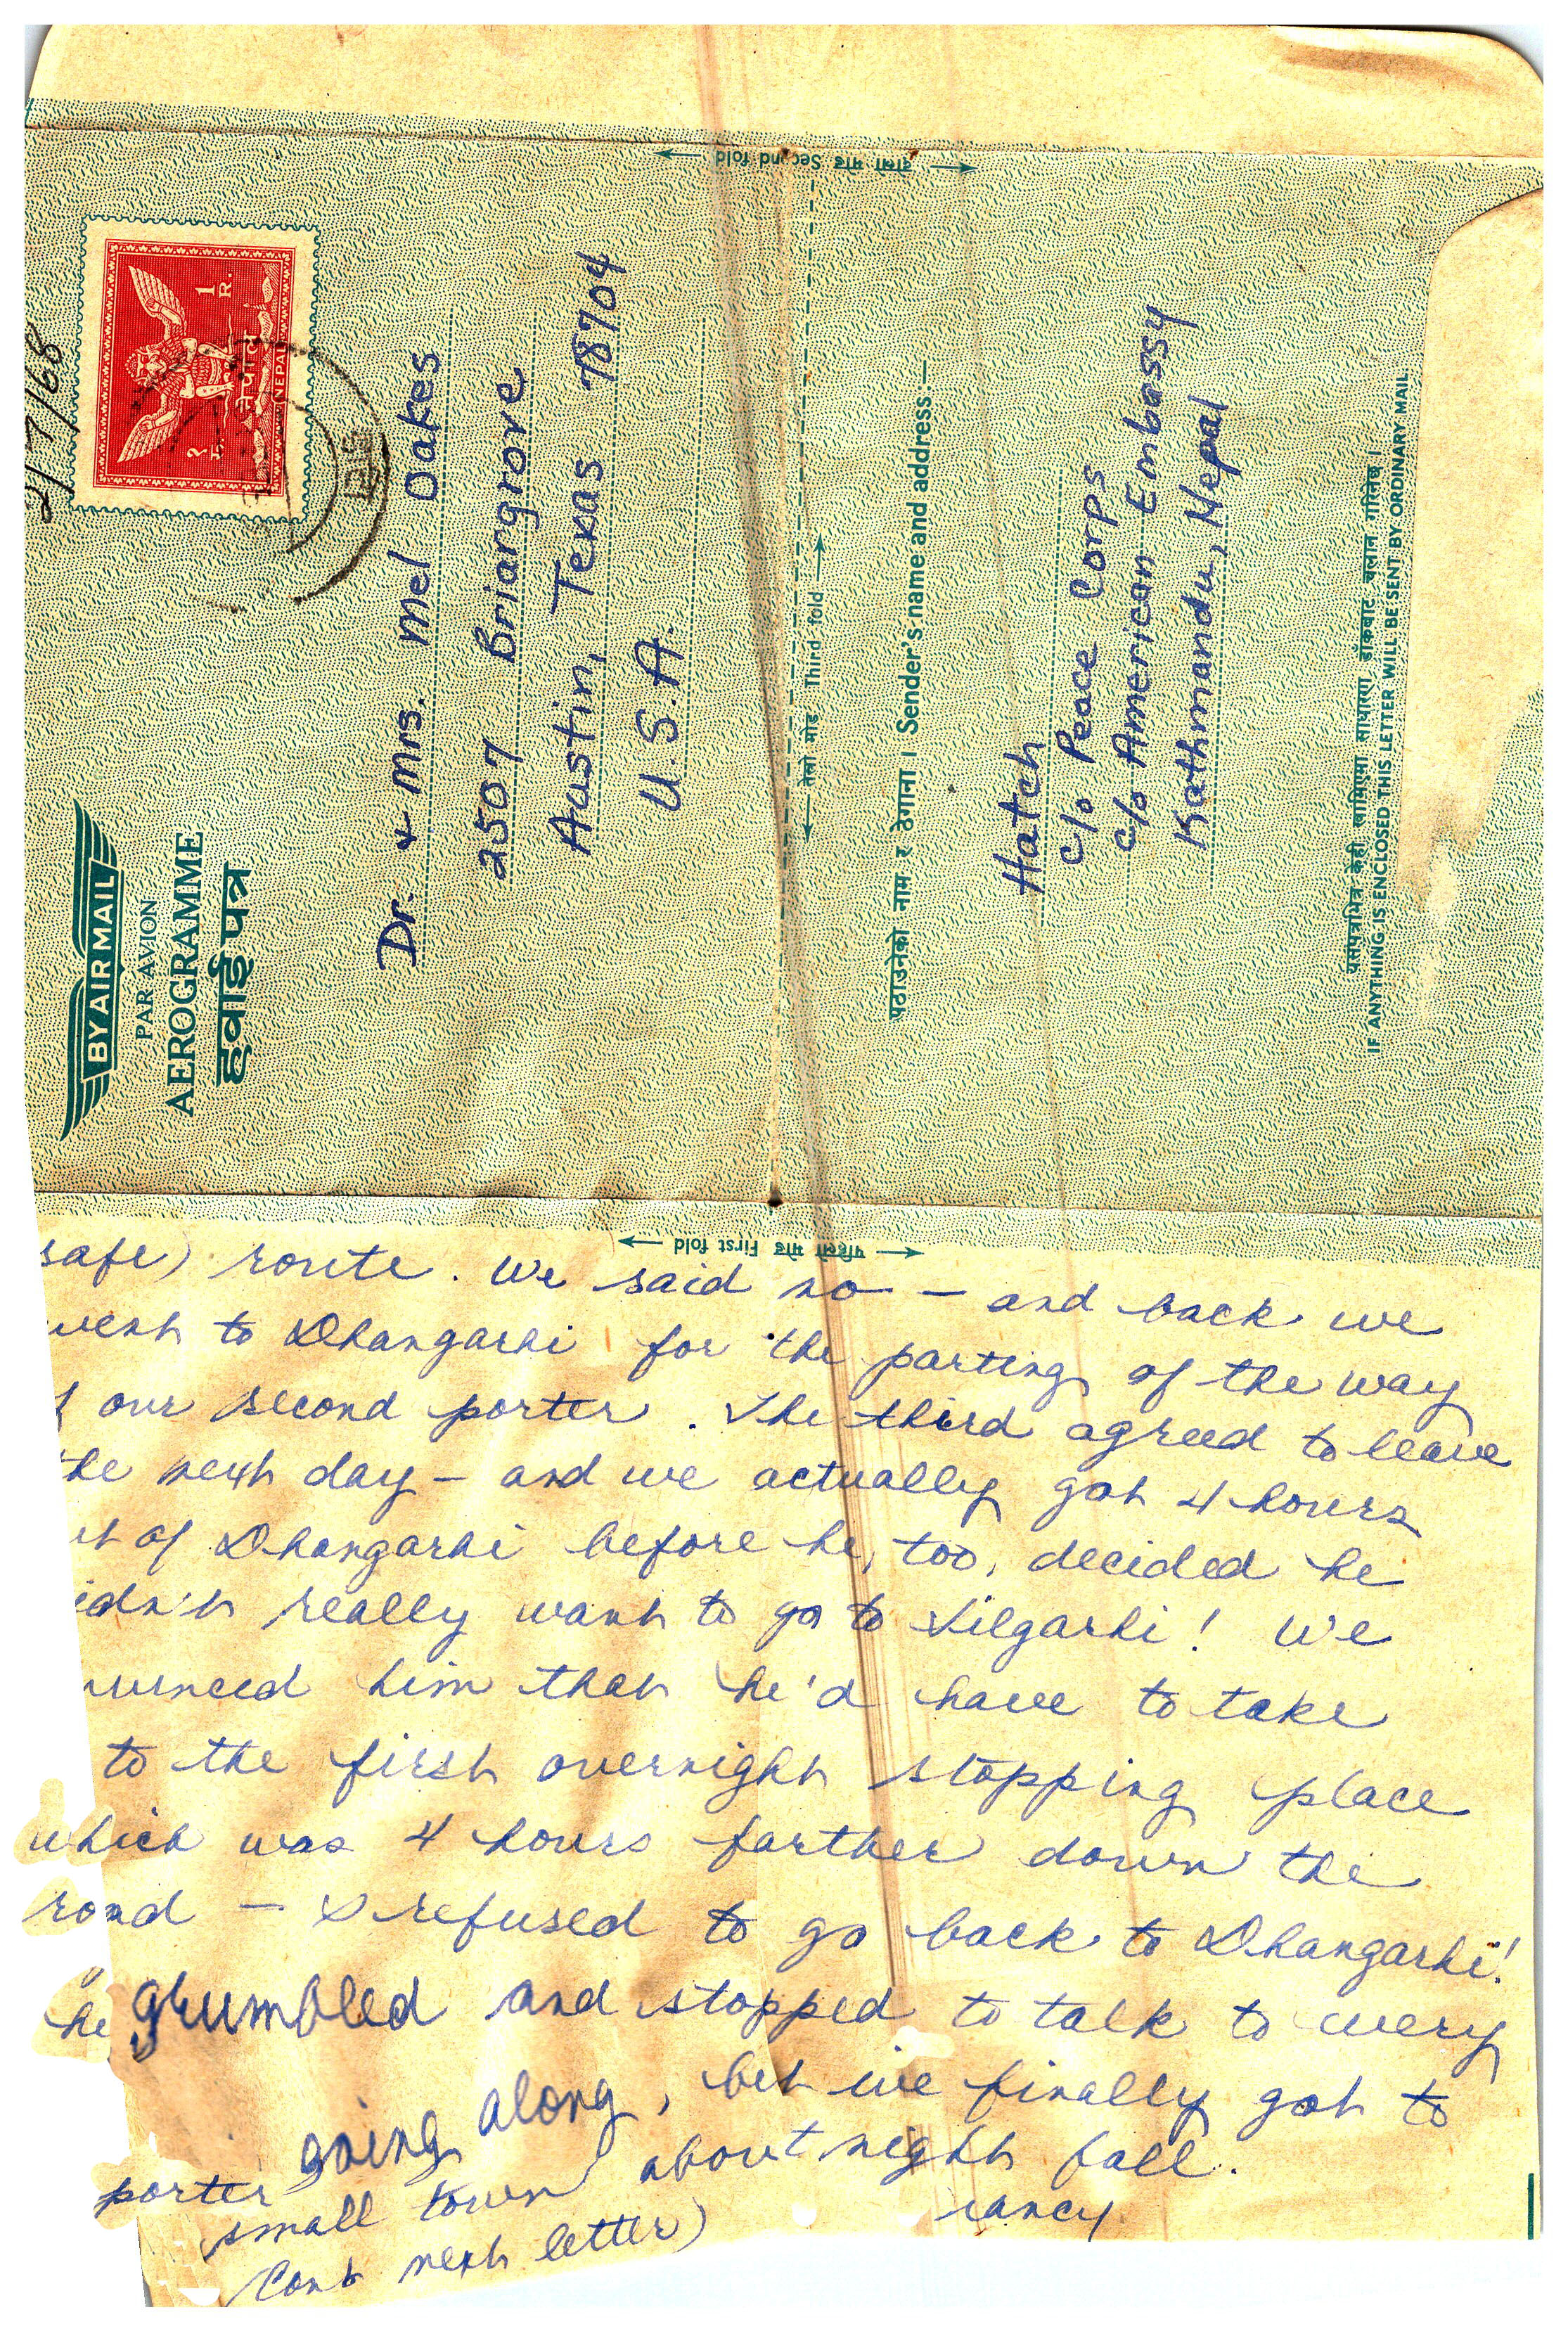 2/7/68
१ रु.
1 R.
नेपाल
NEPAL
BY AIR MAIL
PAR AVION
AEROGRAMME
हवाई पत्र
Dr. & Mrs. Mel Oakes
2507 Briargrove
Austin, Texas 78704
U.S.A.
दोस्रो मोड Second fold
तेस्रो मोड Third fold
पठाउनेको नाम र ठेगाना । Sender's name and address:—
Hatch
c/o Peace Corps
c/o American Embassy
Kathmandu, Nepal
यसपत्रभित्र केही खामिएमा साधारण डाँकबाट चलान गरिनेछ ।
IF ANYTHING IS ENCLOSED THIS LETTER WILL BE SENT BY ORDINARY MAIL
पहिलो मोड First fold
safe) route. We said no — and back we
went to Dhangarhi for the parting of the way
our second porter. The third agreed to leave
the next day — and we actually got 4 hours
of Dhangarhi before he, too, decided he
didn't really want to go to Silgarhi! We
him that he'd have to take
to the first overnight stopping place
which was 4 hours farther down the
road — & refused to go back to Dhangarhi!
he grumbled and stopped to talk to every
porter going along, but we finally got to
small town about night fall.
(Cont next letter) Nancy